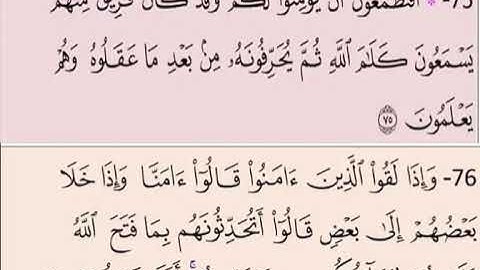 75- * أَفَتَطْمَعُونَ أَن يُؤْمِنُوا۟ لَكُمْ وَقَدْ كَانَ فَرِيقٌ مِّنْهُمْ
يَسْمَعُونَ كَلَٰمَ ٱللَّهِ ثُمَّ يُحَرِّفُونَهُۥ مِنۢ بَعْدِ مَا عَقَلُوهُ وَهُمْ
يَعْلَمُونَ ٧٥
76- وَإِذَا لَقُوا۟ ٱلَّذِينَ ءَامَنُوا۟ قَالُوٓا۟ ءَامَنَّا وَإِذَا خَلَا
بَعْضُهُمْ إِلَىٰ بَعْضٍ قَالُوٓا۟ أَتُحَدِّثُونَهُم بِمَا فَتَحَ ٱللَّهُ